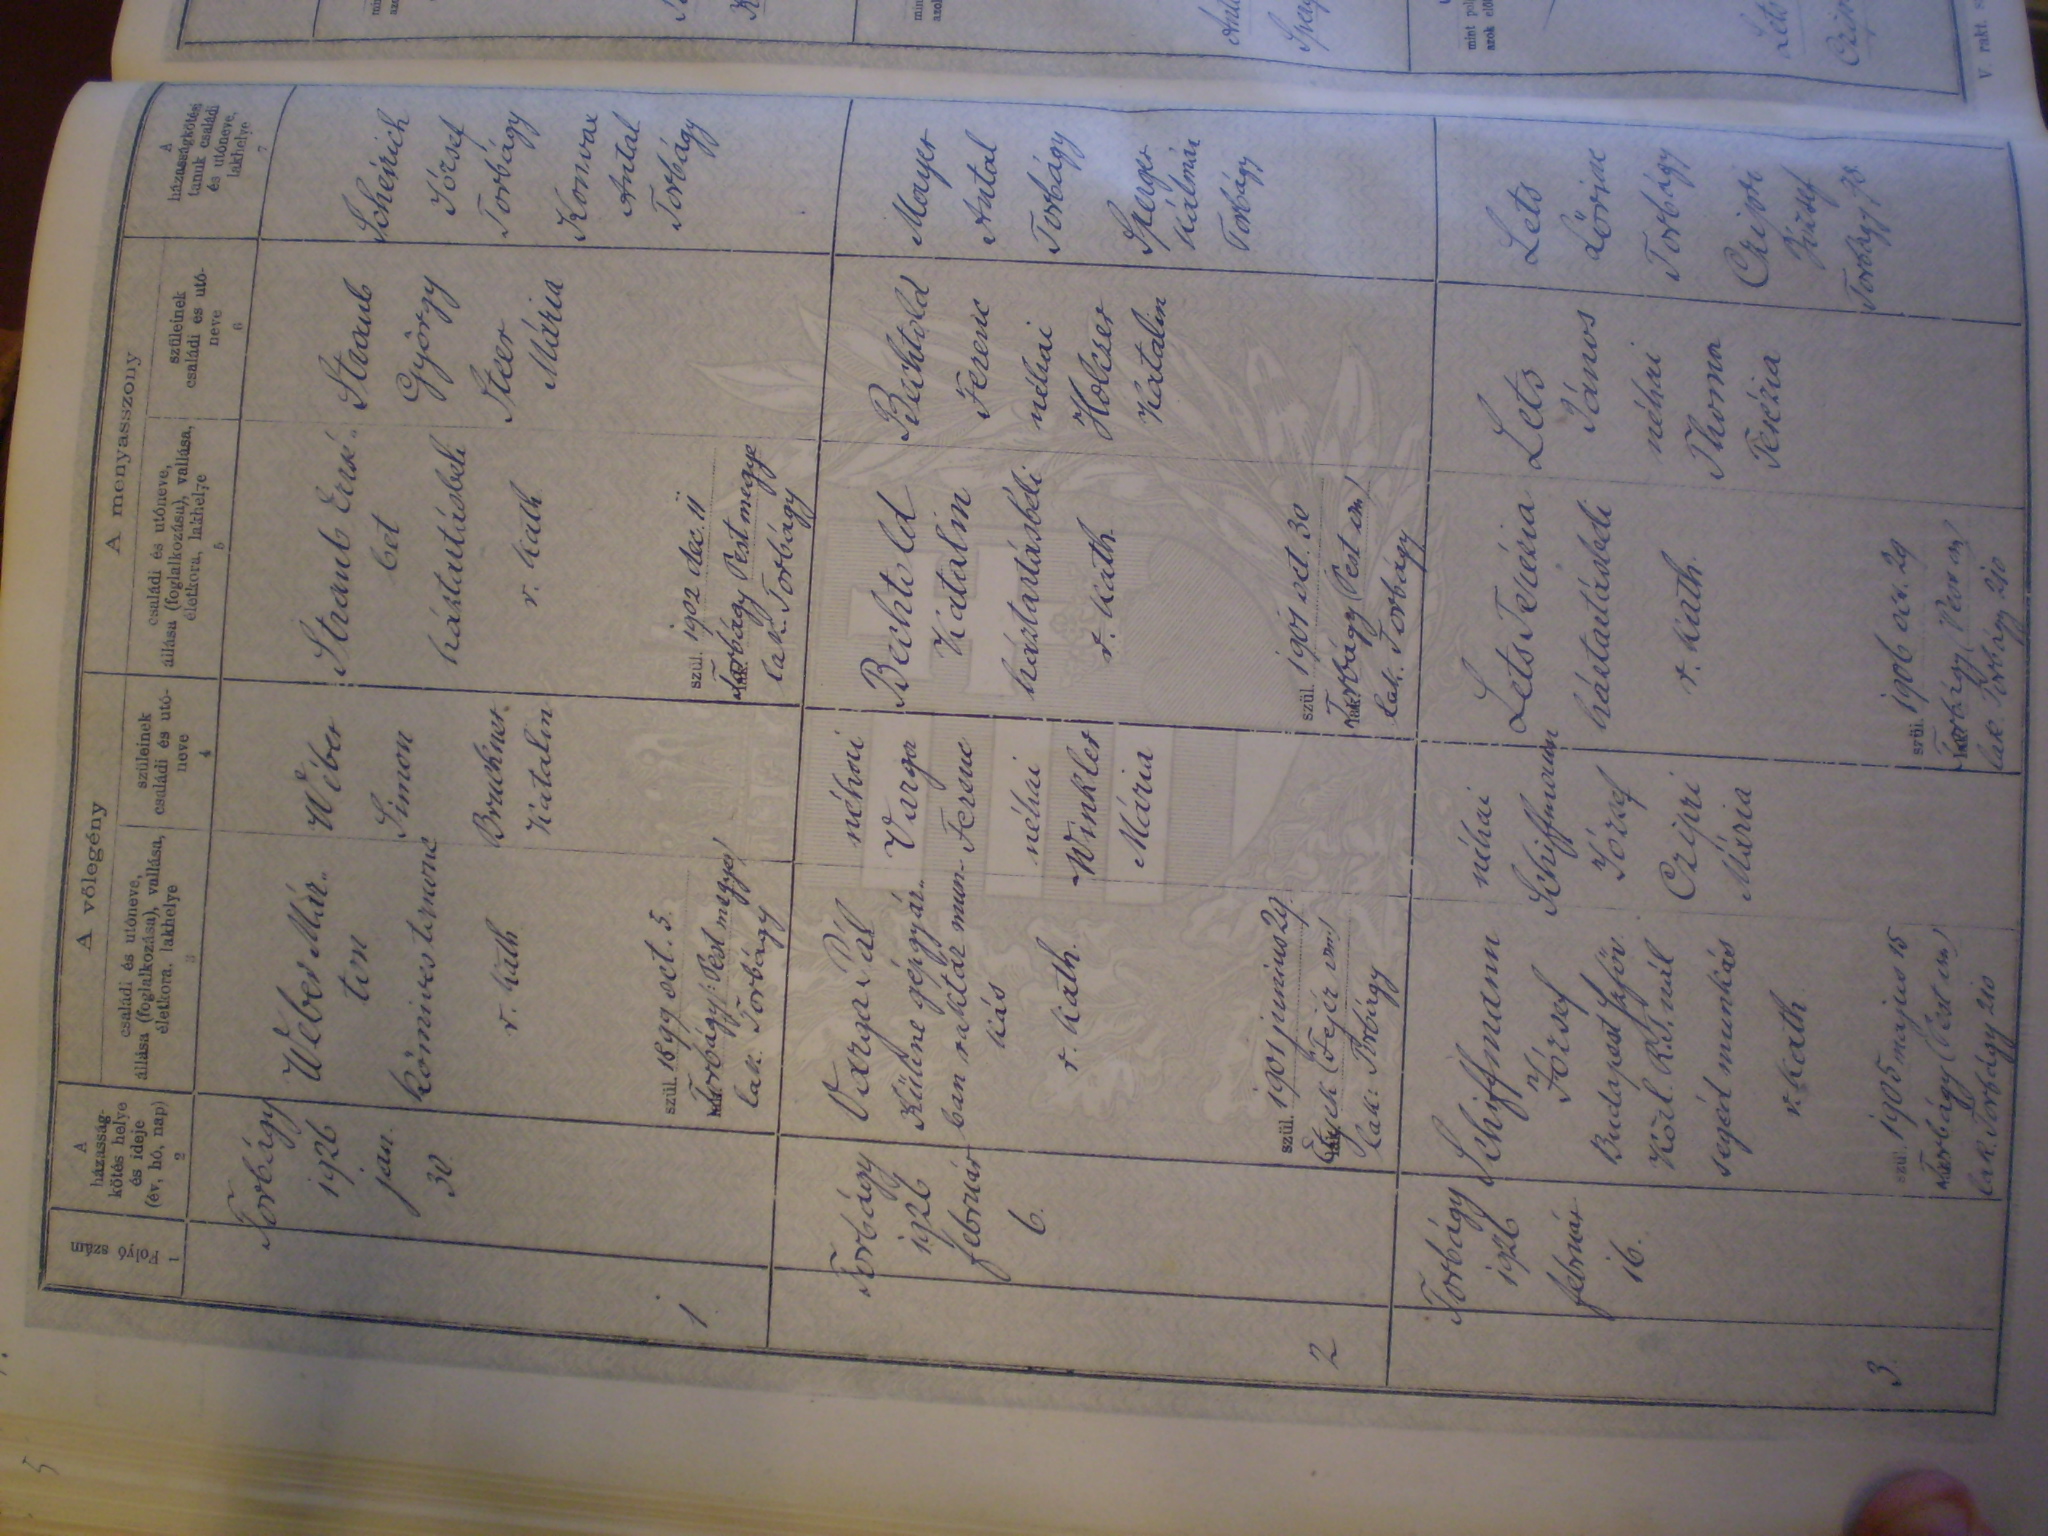 A vőlegény
A menyasszony
Folyó szám
1
A
házasság-
kötés helye
és ideje
(év, hó, nap)
2
családi és utóneve,
állása (foglalkozása), vallása,
életkora, lakhelye
3
szüleinek
családi és utó-
neve
4
családi és utóneve,
állása (foglalkozása), vallása,
életkora, lakhelye
5
szüleinek
családi és utó-
neve
6
A
házasságkötési
tanuk családi
és utóneve,
lakhelye
7
1
Torbágy
1926
jan.
30.
Weber Már-
ton
kőmivesterumc
r. kath
szül. 1899 oct. 5.
Torbágy (Pest megye)
lak. Torbágy
Wéber
Simon
Bruckner
Katalin
Straub Erzsé-
bet
háztartásbeli
r. kath
szül. 1902 dec. 11
Torbágy Pest megye
lak. Torbágy
Straub
György
Steer
Mária
Scherich
József
Torbágy
Antal
Torbágy
2
Torbágy
1926
február
6.
Varga Pál
Kühne gépgyár-
ban raktár mun-
kás
r. kath.
szül. 1901 junius 29.
Etyek (Fejér vm)
lak: Torbágy
néhai
Varga
Ferenc
néhai
Winkler
Mária
Bechtold
Katalin
háztartásbéli
r. kath.
szül. 1901 oct. 30
Torbágy (Pest vm)
lak. Torbágy
Bechtold
Ferenc
néhai
Holczer
Katalin
Mayer
Antal
Torbágy
Sperger
Kálmán
Torbágy
3.
Torbágy
1926
február
16.
Schiffmann
József
Budapest
segéd munkás
r. kath
szül. 1905 majus 15
Torbágy (Pest vm)
lak. Torbágy 210
néhai
Schiffmann
József
Czipri
Mária
Lets Terézia
háztartásbeli
r. kath.
szül. 1906 29
Torbágy (Pest vm)
lak Torbágy 210
Lets
János
néhai
Thoma
Terézia
Lets
Lőrinc
Torbágy
Czipri
József
Torbágy 98
V. rakt. s